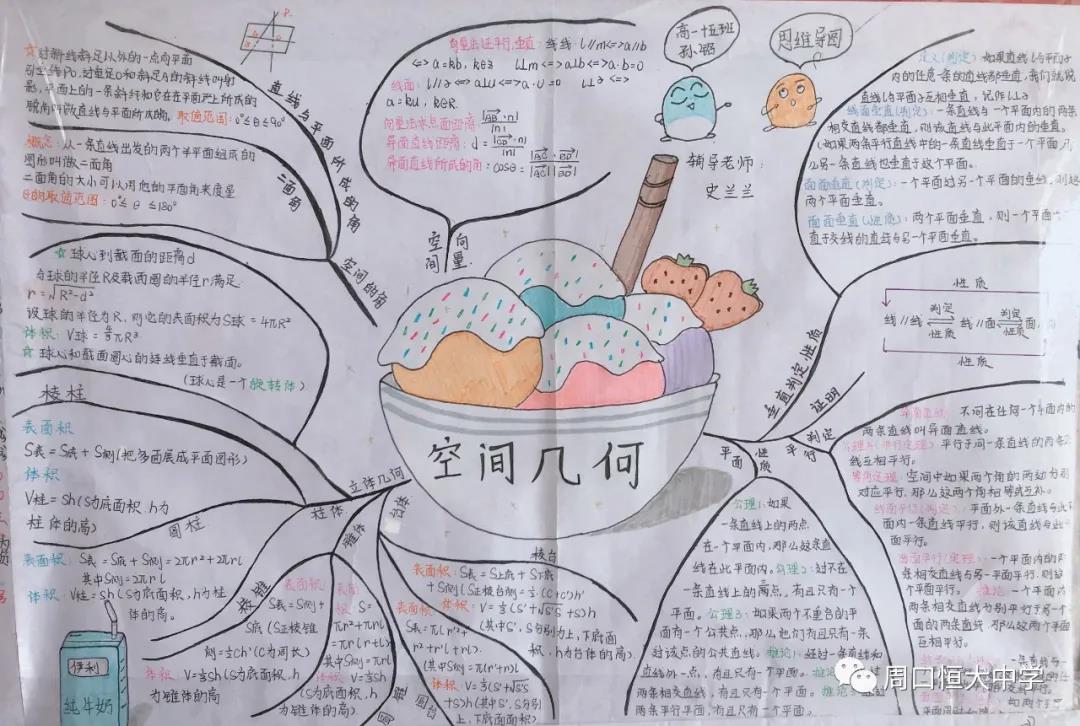 ☆过斜线斜足以外的一点向平面
引垂线PO,过垂足O和斜足A的斜线叫射
影,平面上的一条斜线和它在平面上所成的
锐角叫做直线与平面所成角,取值范围:0°≤θ≤90°
直线与平面所成的角
概念:从一条直线出发的两个半平面组成的
图形叫做二面角
二面角的大小可以用它的平面角来度量
θ的取值范围:0°≤θ≤180°
二面角
空间的角
向量法证平行,垂直:线线:l//m<=>a//b
<=>a=kb, k∈R l⊥m<=>a⊥b<=>a·b=0
线面:l//α<=>a⊥u<=>a·u=0 l⊥α<=>
a=ku, k∈R.
向量法求点面距离:|AB·n|/|n|
异面直线距离:d=|CD·n|/|n|
异面直线所成的角:cosθ=|AC·BD|/|AC||BD|
空间向量
高一十五班
思维导图
辅导老师:
史兰兰
定义(判定):如果直线l与平面α
内的任意一条的直线都垂直,我们就说
直线l与平面α互相垂直,记作l⊥α
线面垂直(判定):一条直线与一个平面内的两条
相交直线都垂直,则该直线与此平面内的垂直。
(如果两条平行直线中的一条直线垂直于一个平面,
么另一条直线也垂直于这个平面。
面面垂直(判定):一个平面过另一个平面的垂线,则这
两个平面垂直。
面面垂直(性质):两个平面垂直,则一个平面
直于交线的直线与另一个平面垂直。
垂直判定·性质
☆球心到截面的距离d
与球的半径R及截面圆的半径r满足
r=√R²-d²
设球的半径为R,则它的表面积为S球=4πR²
体积:V球=4/3πR³
☆球心和截面圆心的连线垂直于截面。
(球心是一个旋转体)
性质
线//线 判定 性质 线//面 判定 性质 面
性质
证明
棱柱
表面积
S表=S底+S侧(把多面展成平面图形)
体积
V柱=Sh(S为底面积,h为
柱体的高)
圆柱
表面积:S表=S底+S侧=2πr²+2πrl
其中S侧=2πrl
体积:V柱=Sh(S为底面积,h为柱
体的高。
立体几何
柱体
锥体
台体
空间几何
棱锥
表面积:
S表=S侧+
S底(S正棱锥
侧=½Ch'(C为周长)
体积:V=⅓Sh(S为底面积,h
为锥体的高
圆锥
表面积:S=
πr²+πrl
=πr(r+l)
其中S侧=πrl
体积:V=⅓Sh
(S为底面积,h
为锥体的高)
棱台
表面积:S表=S上底+S下底
+S侧(S正棱台侧=½(C+C')h'
体积:V=⅓(S'+√S'S+S)h
(其中S',S分别为上,下底面
积,h为台体的高)
圆台
表面积:
S表=π(r'²+
r²+r'l+rl).
(其中S侧=π(r'+r)l)
体积:V=⅓(S'+√S'S
+S)h(其中S',S分别
上,下底面面积)
平面
性质
公理1:如果
一条直线上的两点
在一个平面内,那么这条直
线在此平面内。公理2:过不在
一条直线上的两点,有且只有一个
平面。公理3:如果两个不重合的平
面有一个公共点,那么他们有且只有一条
过该点的公共直线。推论1:经过一条直线和
直线外一点,有且只有一个平面。
两条相交直线,有且只有一个平面。
两条平行平面,有且只有一个平面。
平行
判定
异面直线:不同在任何一个平面内的
两条直线叫异面直线。
公理4(平行定理):平行于同一条直线的两条
线互相平行。
等角定理:空间中如果两个角的两边分别
对应平行,那么这两个角相等或互补。
线面平行(判定):平面外一条直线与此
面内一条直线平行,则该直线与此
面平行。
面面平行(定理):一个平面内的两
条相交直线与另一平面平行,则这
个平面平行。推论:一个平面内
两条相交直线分别平行于另一个
面的两条直线,那么这两个平面
互相平行。
伊利
纯牛奶
周口恒大中学